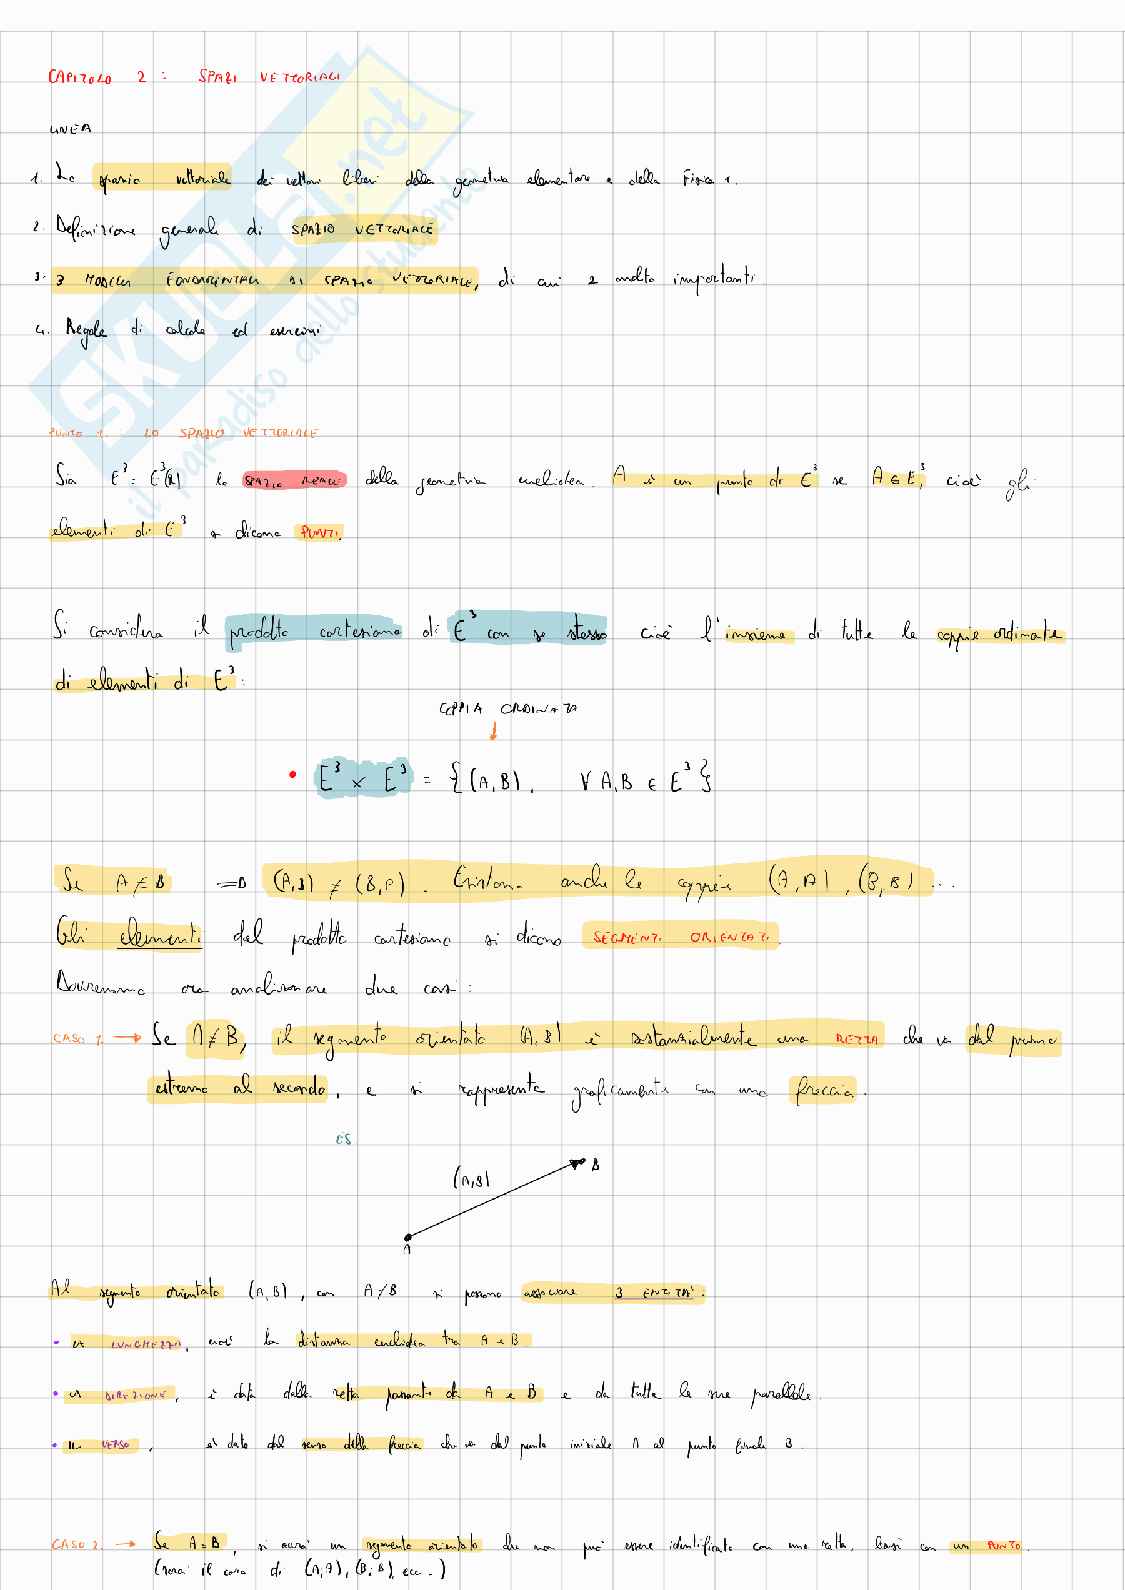 CAPITOLO 2 : SPAZI VETTORIALI
LINEA
1. Lo spazio vettoriale dei vettori liberi della geometria elementare e della Fisica 1.
2. Definizione generale di SPAZIO VETTORIALE
3. 3 MODELLI FONDAMENTALI DI SPAZIO VETTORIALE, di cui 2 molto importanti
4. Regole di calcolo ed esercizi
PUNTO 1. : LO SPAZIO VETTORIALE
Sia E³ = E³(R) lo SPAZIO REALE della geometria euclidea. A è un punto di E³ se A ∈ E³, cioè gli
elementi di E³ si dicono PUNTI.
Si considera il prodotto cartesiano di E³ con se stesso cioè l'insieme di tutte le coppie ordinate
di elementi di E³:
COPPIA ORDINATA
• E³ × E³ = {(A,B), ∀ A,B ∈ E³}
Se A ≠ B => (A,B) ≠ (B,A). Esistono anche le coppie (A,A), (B,B) ...
Gli elementi del prodotto cartesiano si dicono SEGMENTI ORIENTATI.
Dovremmo ora analizzare due casi:
CASO 1. → Se A ≠ B, il segmento orientato (A,B) è sostanzialmente una RETTA che va dal primo
estremo al secondo, e si rappresenta graficamente con una freccia.
ES
(A,B)
B
A
Al segmento orientato (A,B), con A ≠ B si possono associare 3 ENTITÀ:
• LA LUNGHEZZA, cioè la distanza euclidea tra A e B
• LA DIREZIONE, è data dalla retta passante da A e B e da tutte le sue parallele.
• IL VERSO, è dato dal senso della freccia che va dal punto iniziale A al punto finale B.
CASO 2. → Se A = B, si avrà un segmento orientato che non può essere identificato con una retta, bensì con un PUNTO.
(sarà il caso di (A,A), (B,B) ecc.)
SKUOLA.net
il paradiso dello studente